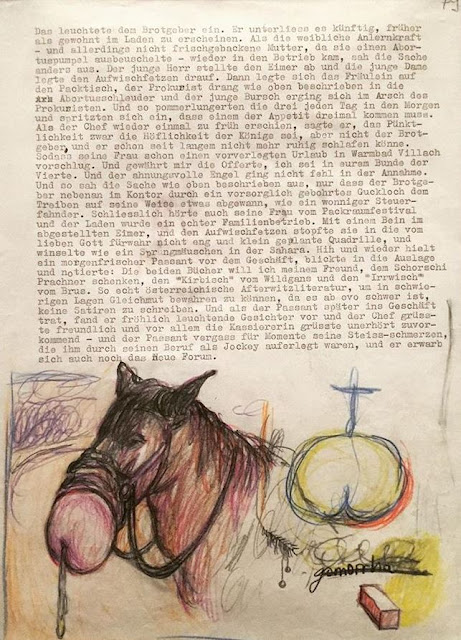 Das leuchtete dem Brotgeber ein. Er unterliess es künftig, früher
als gewohnt im Laden zu erscheinen. Als die weibliche Anlernkraft
- und allerdings nicht frischgebackene Mutter, da sie einen Abor-
tuspumpel ausbeuschelte - wieder in den Betrieb kam, sah die Sache
anders aus. Der junge Herr stellte den Eimer ab und die junge Dame
legte den Aufwischfetzen drauf. Dann legte sich das Fräulein auf
den Packtisch, der Prokurist drang wie oben beschrieben in die
Abortusschleuder und der junge Bursch erging sich im Arsch des
Prokuristen. Und so pommerlungerten die drei jeden Tag in den Morgen
und spritzten sich ein, dass einem der Appetit dreimal kommen muss.
Als der Chef wieder einmal zu früh erschien, sagte er, das Pünkt-
lichkeit zwar die Höflichkeit der Könige sei, aber nicht der Brot-
geber, und er schon seit langem nicht mehr ruhig schlafen könne.
Sodass seine Frau schon einen vorverlegten Urlaub in Warmbad Villach
vorschlug. Und gewährt mir die Offerte, ich sei in eurem Bunde der
Vierte. Und der ahnungsvolle Engel ging nicht fehl in der Annahme.
Und so sah die Sache wie oben beschrieben aus, nur dass der Brotge-
ber nebenan im Kontor durch ein vorsorglich gebohrtes Guckloch dem
Treiben auf seine Weise etwas abgewann, wie ein wonniger Steuer-
fahnder. Schliesslich hörte auch seine Frau vom Packraumfestival
und der Laden wurde ein echter Familienbetrieb. Mit einem Bein im
abgestellten Eimer, und den Aufwischfetzen stopfte sie in die vom
lieben Gott fürwahr nicht eng und klein geplante Quadrille, und
winselte wie ein Springmäuschen in der Sahara. Hin und wieder hielt
ein morgenfrischer Passant vor dem Geschäft, blickte in die Auslage
und notierte: Die beiden Bücher will ich meinem Freund, dem Schorschi
Prachner schenken, den "Kirbisch" vom Wildgans und den "Irrwisch"
vom Brus. So echt österreichische Afterwitzliteratur, um in schwie-
rigen Lagen Gleichmut bewahren zu können, da es ab ovo schwer ist,
keine Satiren zu schreiben. Und als der Passant später ins Geschäft
trat, fand er fröhlich leuchtende Gesichter vor und der Chef grüss-
te freundlich und vor allem die Kassiererin grüsste unerhört zuvor-
kommend - und der Passant vergass für Momente seine Steiss-schmerzen,
die ihm durch seinen Beruf als Jockey auferlegt waren, und er erwarb
sich auch noch das Neue Forum.
gomorrha